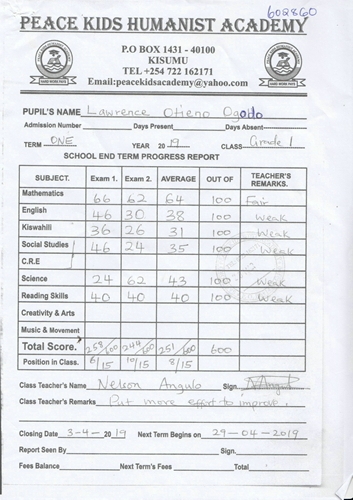 602860
PEACE KIDS HUMANIST ACADEMY
P.O BOX 1431 - 40100
KISUMU
TEL +254 722 162171
Email:peacekidsacademy@yahoo.com
PUPIL'S NAME Lawrence Otieno Ogollo
Admission Number Days Present Days Absent
TERM ONE YEAR 2019 CLASS Grade 1
SCHOOL END TERM PROGRESS REPORT
SUBJECT. Exam 1. Exam 2. AVERAGE OUT OF TEACHER'S REMARKS.
Mathematics 66 62 64 100 Fair
English 46 30 38 100 Weak
Kiswahili 36 26 31 100 Weak
Social Studies 46 24 35 100 Weak
C.R.E
Science 24 62 43 100 Weak
Reading Skills 40 40 40 100 Weak
Creativity & Arts
Music & Movement
Total Score. 258/600 244/600 251/600 600
Position in Class. 6/15 10/15 8/15
Class Teacher's Name Nelson Angulo Sign.
Class Teacher's Remarks Put more effort to improve.
Closing Date 3-4-2019 Next Term Begins on 29-04-2019
Report Seen By Sign.
Fees Balance Next Term's Fees Total